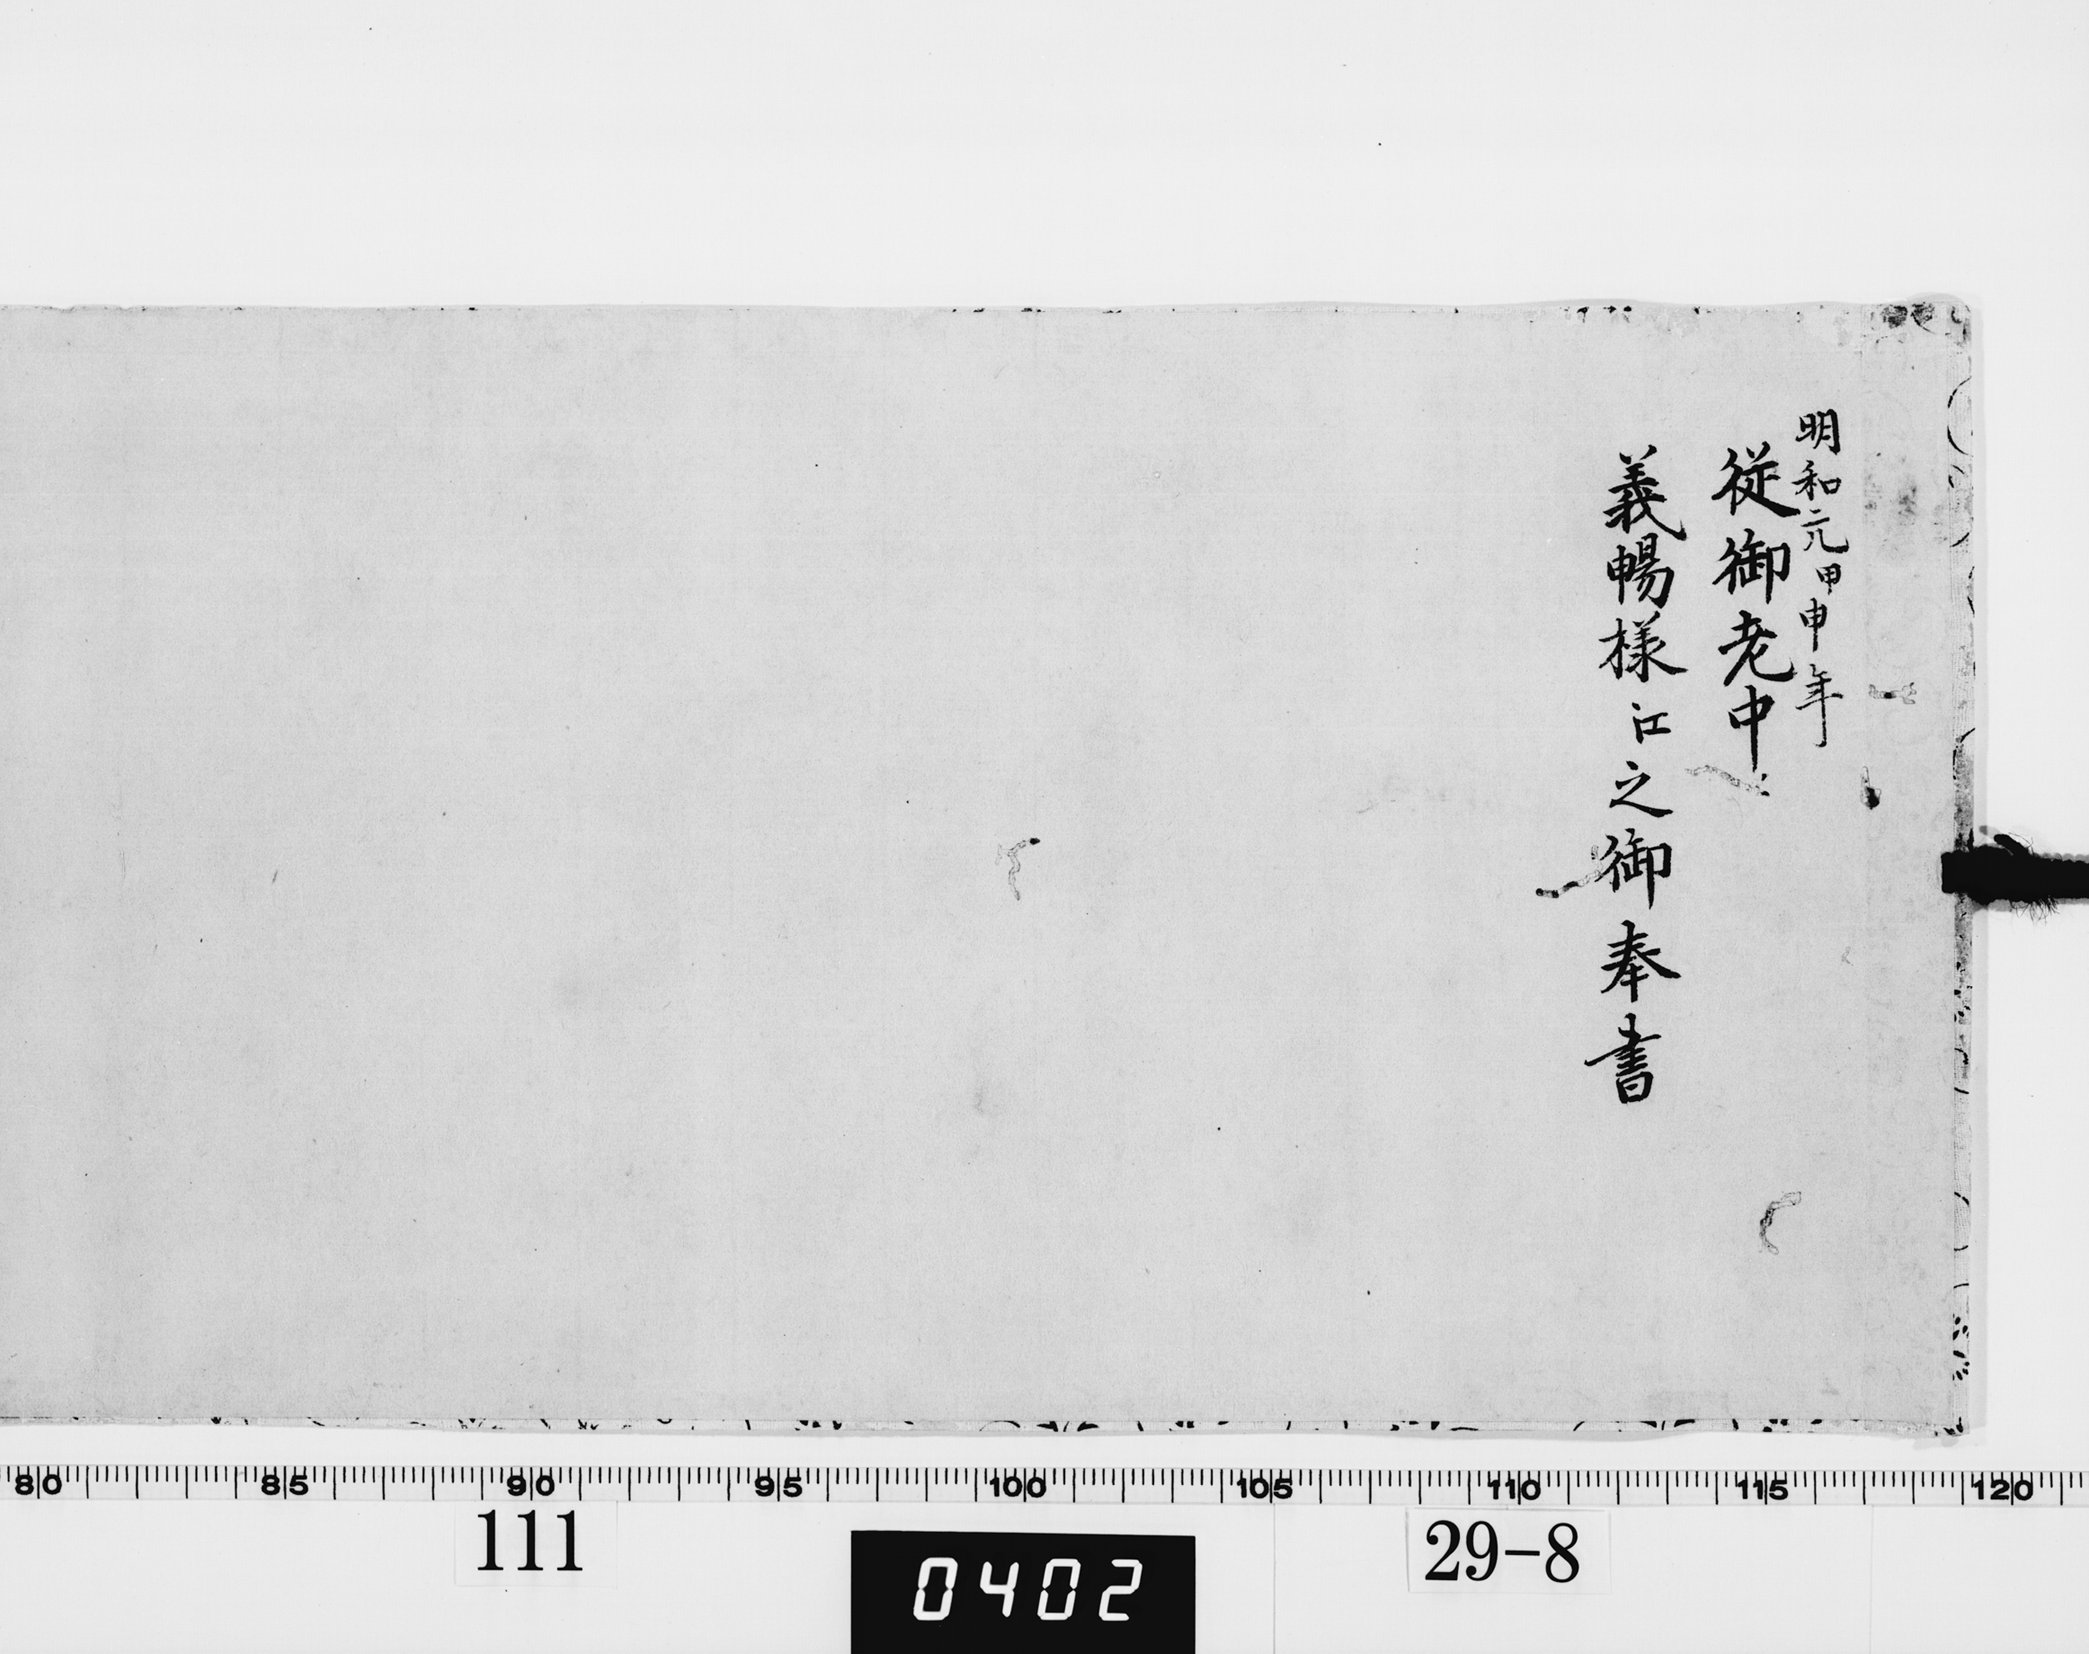 明和元甲申年
従御老中
義暢様江之御奉書
80 85 90 95 100 105 110 115 120
111
0402
29-8